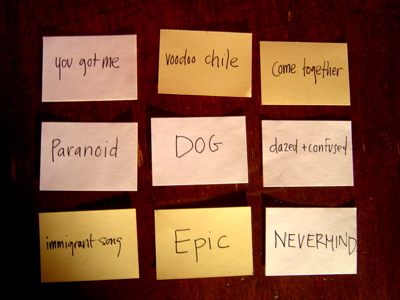 you got me
voodoo chile
Come together
Paranoid
DOG
dazed + confused
immigrant song
Epic
NEVERMIND